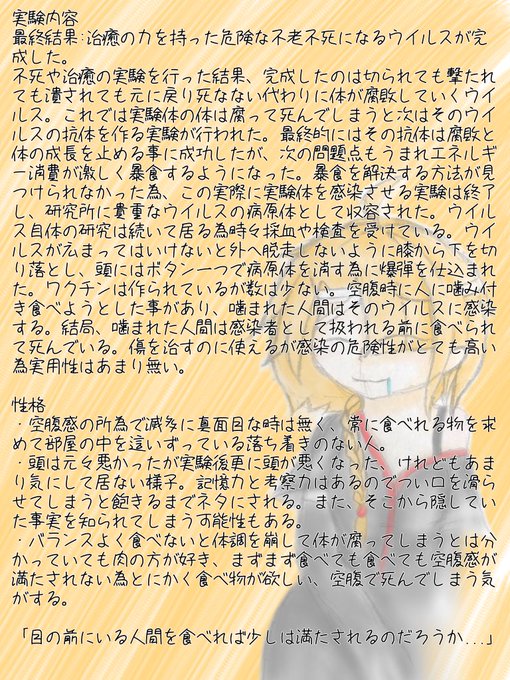 実験内容
最終結果:治癒の力を持った危険な不老不死になるウイルスが完
成した。
不死や治癒の実験を行った結果、完成したのは切られても撃たれ
ても潰されても元に戻り死なない代わりに体が腐敗していくウイ
ルス。これでは実験体の体は腐って死んでしまうと次はそのウイ
ルスの抗体を作る実験が行われた。最終的にはその抗体は腐敗と
体の成長を止める事に成功したが、次の問題点もうまれエネルギ
ー消費が激しく暴食するようになった。暴食を解決する方法が見
つけられなかった為、この実際に実験体を感染させる実験は終了
し、研究所に貴重なウイルスの病原体として収容された。ウイル
ス自体の研究は続いて居る為時々採血や検査を受けている。ウイ
ルスが広まってはいけないと外へ脱走しないように膝から下を切
り落とし、頭にはボタン一つで病原体を消す為に爆弾を仕込まれ
た。ワクチンは作られているが数は少ない。空腹時に人に噛み付
き食べようとした事があり、噛まれた人間はそのウイルスに感染
する。結局、噛まれた人間は感染者として扱われる前に食べられ
て死んでいる。傷を治すのに使えるが感染の危険性がとても高い
為実用性はあまり無い。
性格
・空腹感の所為で滅多に真面目な時は無く、常に食べれる物を求
めて部屋の中を這いずっている落ち着きのない人。
・頭は元々悪かったが実験後更に頭が悪くなった、けれどもあま
り気にして居ない様子。記憶力と考察力はあるのでつい口を滑ら
せてしまうと飽きるまでネタにされる。また、そこから隠してい
た事実を知られてしまう可能性もある。
・バランスよく食べないと体調を崩して体が腐ってしまうとは分
かっていても肉の方が好き、まずまず食べても食べても空腹感が
満たされない為とにかく食べ物が欲しい、空腹で死んでしまう気
がする。
「目の前にいる人間を食べれば少しは満たされるのだろうか...」